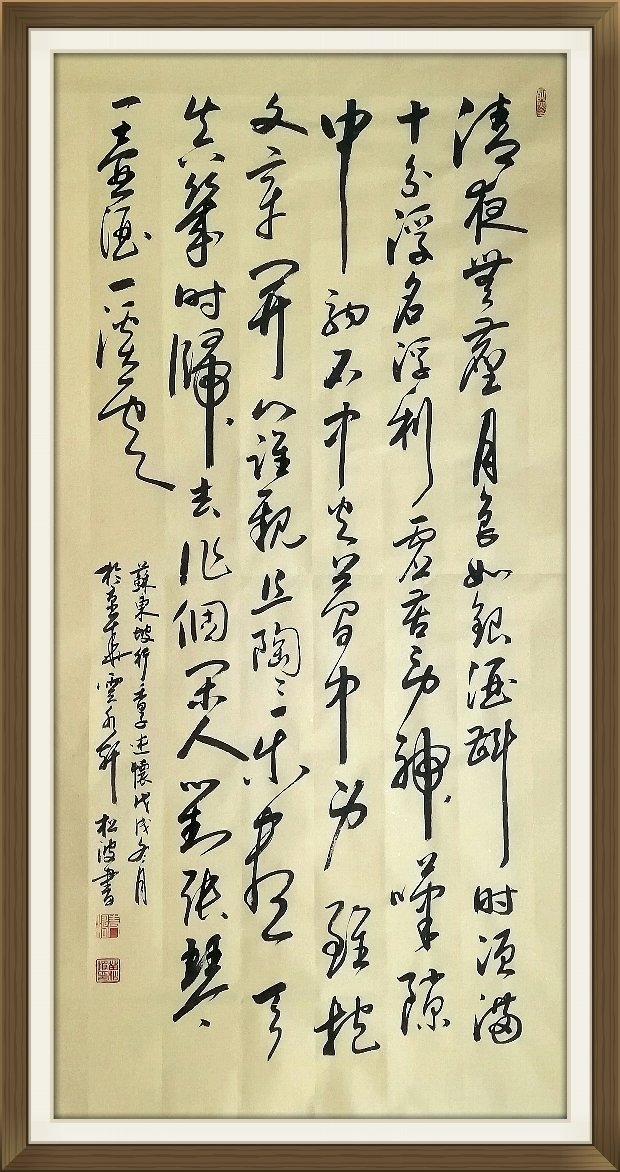 清夜無塵月色如銀酒斟时須满
十分浮名浮利虚苦劳神嘆隙
中駒石中火夢中身雖抱
文章開口誰親且陶〻樂盡天
真幾时歸去作個闲人對張琴
一壺酒一溪雲
蘇東坡行香子述懷戊戌冬月
於京華雲水軒 松波書